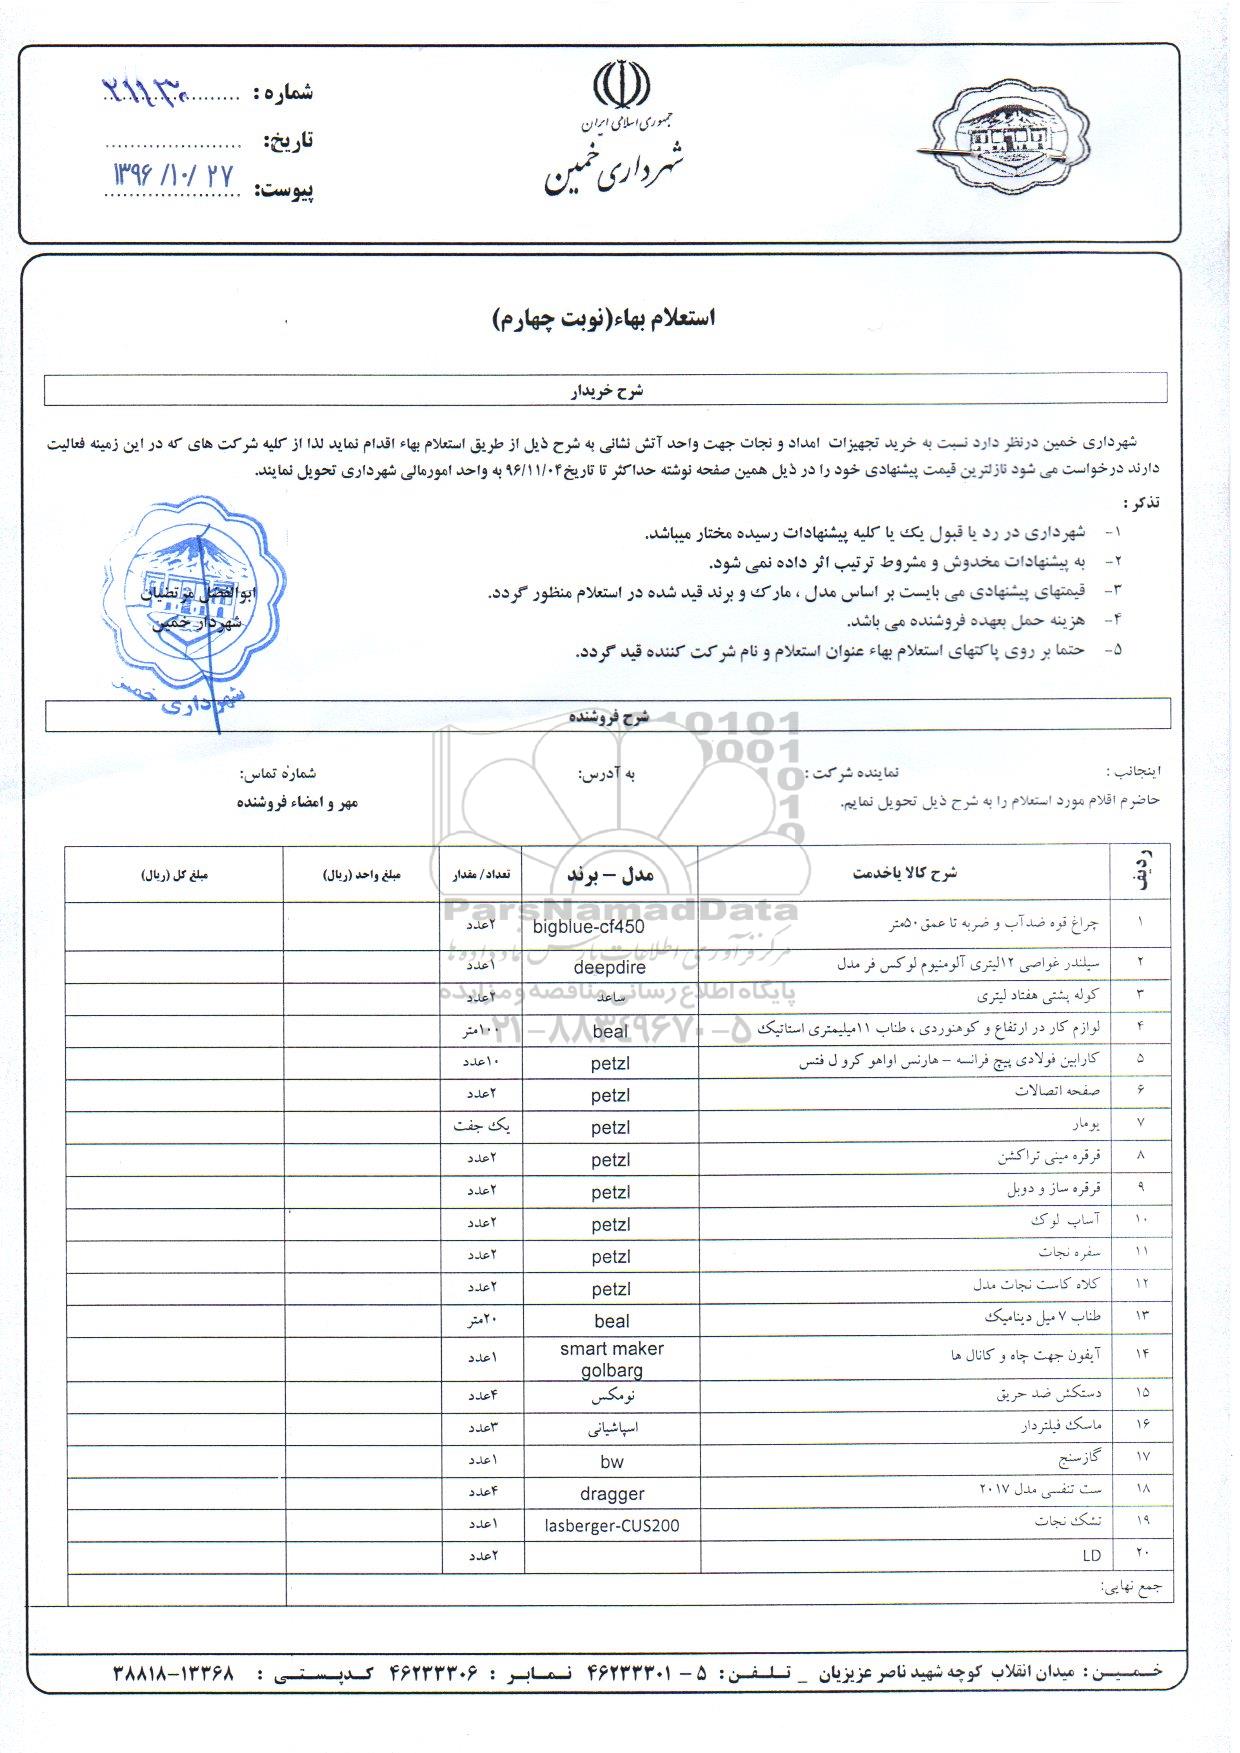 شماره : ۲۱۱۳۰
تاریخ:
پیوست: ۱۳۹۶/۱۰/۲۷
جمهوری اسلامی ایران
شهرداری خمین
استعلام بهاء(نوبت چهارم)
شرح خریدار
شهرداری خمین درنظر دارد نسبت به خرید تجهیزات امداد و نجات جهت واحد آتش نشانی به شرح ذیل از طریق استعلام بهاء اقدام نماید لذا از کلیه شرکت های که در این زمینه فعالیت
دارند درخواست می شود نازلترین قیمت پیشنهادی خود را در ذیل همین صفحه نوشته حداکثر تا تاریخ۹۶/۱۱/۰۴ به واحد امورمالی شهرداری تحویل نمایند.
تذکر :
۱- شهرداری در رد یا قبول یک یا کلیه پیشنهادات رسیده مختار میباشد.
۲- به پیشنهادات مخدوش و مشروط ترتیب اثر داده نمی شود.
۳- قیمتهای پیشنهادی می بایست بر اساس مدل ، مارک و برند قید شده در استعلام منظور گردد.
۴- هزینه حمل بعهده فروشنده می باشد.
۵- حتما بر روی پاکتهای استعلام بهاء عنوان استعلام و نام شرکت کننده قید گردد.
ابوالفضل مرتضیان
شهردار خمین
شهرداری خمین
شرح فروشنده
اینجانب : نماینده شرکت : به آدرس: شماره تماس:
حاضرم اقلام مورد استعلام را به شرح ذیل تحویل نمایم. مهر و امضاء فروشنده
ردیف شرح کالا یاخدمت مدل – برند تعداد/ مقدار مبلغ واحد (ریال) مبلغ کل (ریال)
۱ چراغ قوه ضدآب و ضربه تا عمق۵۰متر bigblue-cf450 ۲عدد
۲ سیلندر غواصی ۱۲لیتری آلومنیوم لوکس فر مدل deepdire ۱عدد
۳ کوله پشتی هفتاد لیتری ساعد ۲عدد
۴ لوازم کار در ارتفاع و کوهنوردی ، طناب ۱۱میلیمتری استاتیک beal ۱۰۰متر
۵ کارابین فولادی پیچ فرانسه – هارنس اواهو کرو ل فتس petzl ۱۰عدد
۶ صفحه اتصالات petzl ۲عدد
۷ یومار petzl یک جفت
۸ قرقره مینی تراکشن petzl ۲عدد
۹ قرقره ساز و دوبل petzl ۲عدد
۱۰ آساب لوک petzl ۲عدد
۱۱ سفره نجات petzl ۲عدد
۱۲ کلاه کاست نجات مدل petzl ۲عدد
۱۳ طناب ۷ میل دینامیک beal ۲۰متر
۱۴ آیفون جهت چاه و کانال ها smart maker golbarg ۱عدد
۱۵ دستکش ضد حریق نومکس ۴عدد
۱۶ ماسک فیلتردار اسپاشیانی ۳عدد
۱۷ گازسنج bw ۱عدد
۱۸ ست تنفسی مدل ۲۰۱۷ dragger ۴عدد
۱۹ تشک نجات lasberger-CUS200 ۱عدد
۲۰ LD ۲عدد
جمع نهایی:
ParsNamadData
مرکز فرآوری اطلاعات پارس نماد داده ها
پایگاه اطلاع رسانی مناقصه و مزایده
۰۲۱-۸۸۳۴۹۶۷۰-۵
خمین : میدان انقلاب کوچه شهید ناصر عزیزیان _ تلفن : ۵ - ۴۶۲۳۳۳۰۱ نمابر : ۴۶۲۳۳۳۰۶ کدپستی : ۳۸۸۱۸-۱۳۳۶۸